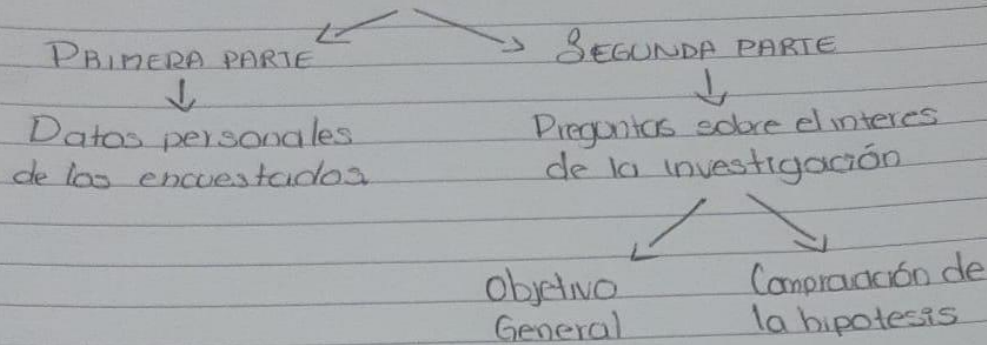 PRIMERA PARTE
SEGUNDA PARTE
Datos personales
de los encuestados
Preguntas sobre el interes
de la investigación
Objetivo
General
Comprobación de
la hipotesis